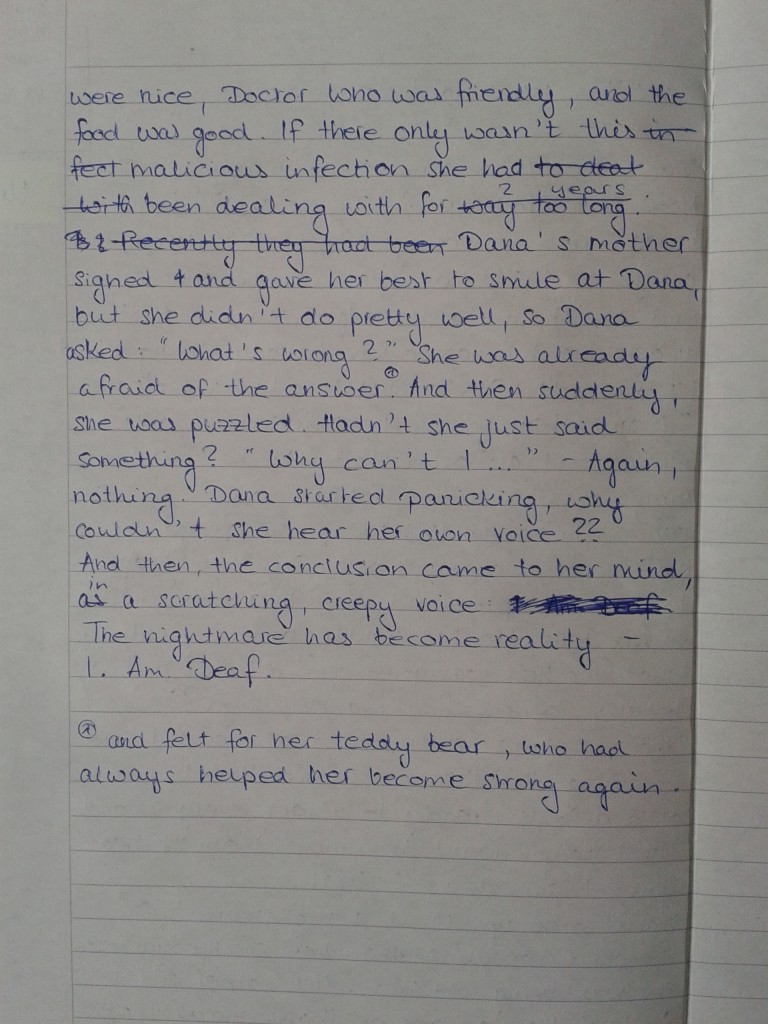 were nice, Doctor Who was friendly, and the
food was good. If there only wasn't this in
fect malicious infection she had to deat
with been dealing with for way too long.
2 years
Recently they had been Dana's mother
signed & and gave her best to smile at Dana,
but she didn't do pretty well, so Dana
asked: "What's wrong?" She was already
afraid of the answer.④ And then suddenly,
she was puzzled. Hadn't she just said
something? "Why can't I ..." - Again,
nothing. Dana started panicking, why
couldn't she hear her own voice ??
And then, the conclusion came to her mind,
in
as a scratching, creepy voice: I Am Deaf
The nightmare has become reality –
I. Am. Deaf.
④ and felt for her teddy bear, who had
always helped her become strong again.